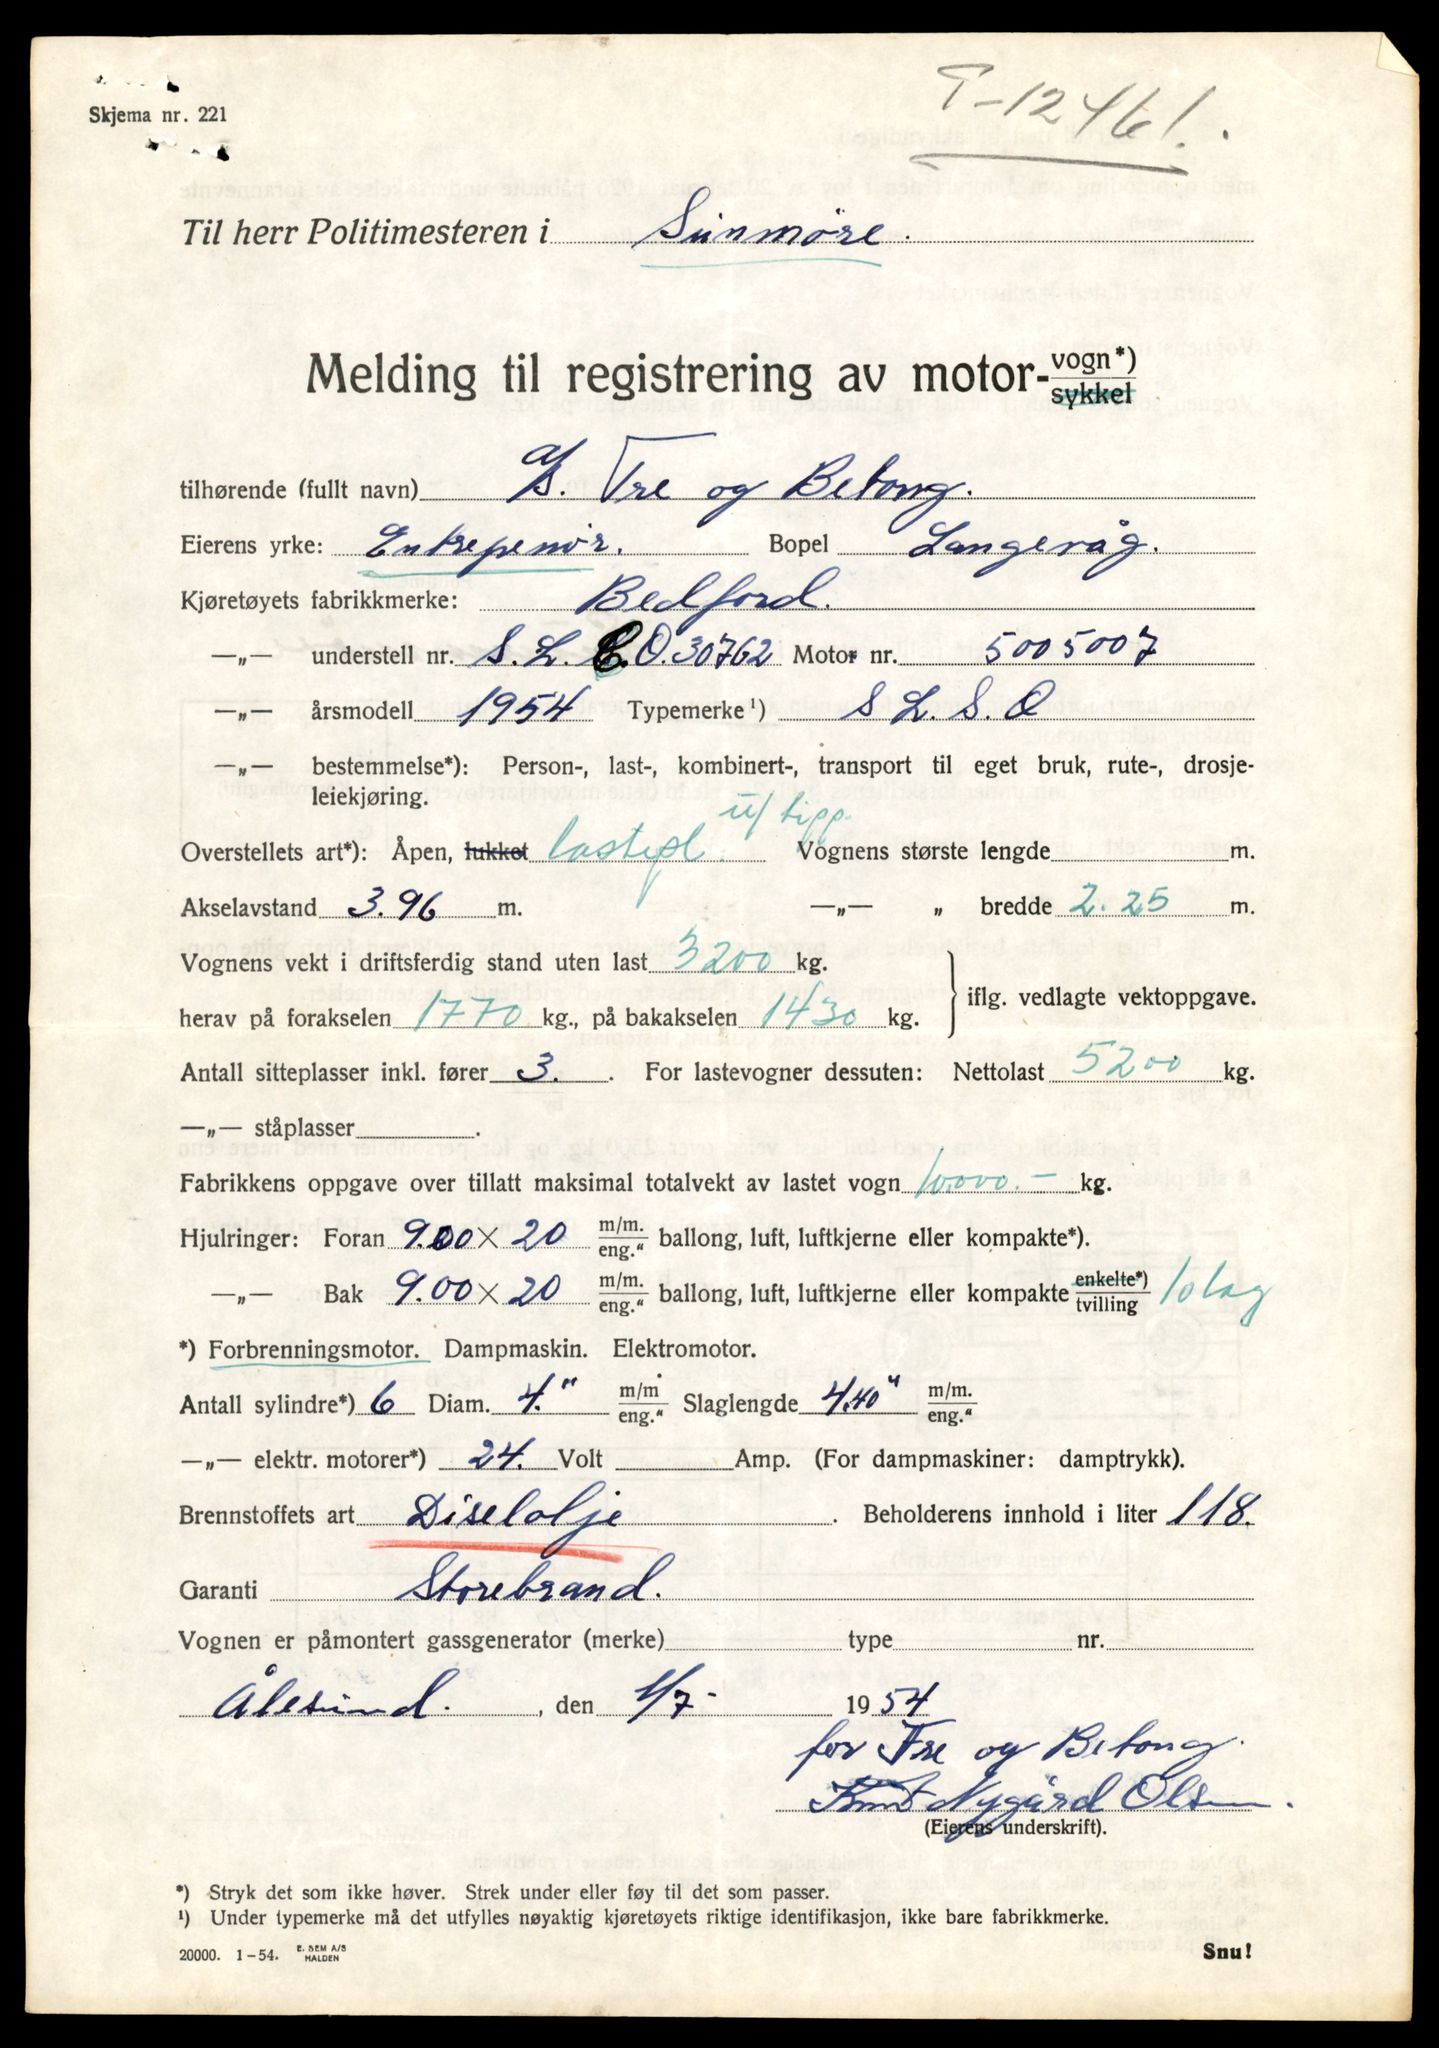 Skjema nr. 221
T-12461.
Til herr Politimesteren i Sunmøre.
Melding til registrering av motor-vogn*)
sykkel
tilhørende (fullt navn) A/S. Tre og Betong.
Eierens yrke: Entrepenør. Bopel Langevåg.
Kjøretøyets fabrikkmerke: Bedford.
—„— understell nr. S. L. C. O. 30762 Motor nr. 5005007
—„— årsmodell 1954 Typemerke¹) S L. S. O
—„— bestemmelse*): Person-, last-, kombinert-, transport til eget bruk, rute-, drosje-
leiekjøring.
u/ tipp.
Overstellets art*): Åpen, lukket lastepl. Vognens største lengde m.
Akselavstand 3.96 m. —„— „ bredde 2.25 m.
Vognens vekt i driftsferdig stand uten last 3200 kg.
herav på forakselen 1770 kg., på bakakselen 1430 kg. iflg. vedlagte vektoppgave.
Antall sitteplasser inkl. fører 3. . For lastevogner dessuten: Nettolast 5200 kg.
—„— ståplasser .
Fabrikkens oppgave over tillatt maksimal totalvekt av lastet vogn 10.000.- kg.
Hjulringer: Foran 9.00 × 20 m/m. eng.“ ballong, luft, luftkjerne eller kompakte*).
—„— Bak 9.00 × 20 m/m. eng.“ ballong, luft, luftkjerne eller kompakte enkelte*) tvilling 10 lag
*) Forbrenningsmotor. Dampmaskin. Elektromotor.
Antall sylindre*) 6 Diam. 4." m/m eng.“ Slaglengde 4.40" m/m. eng.“
—„— elektr. motorer*) 24. Volt Amp. (For dampmaskiner: damptrykk).
Brennstoffets art Diselolje . Beholderens innhold i liter 118.
Garanti Storebrand.
Vognen er påmontert gassgenerator (merke) type nr.
Ålesund. , den 1/7- 1954
for Tre og Betong.
Knut Nygård Olsen.
(Eierens underskrift).
*) Stryk det som ikke høver. Strek under eller føy til det som passer.
¹) Under typemerke må det utfylles nøyaktig kjøretøyets riktige identifikasjon, ikke bare fabrikkmerke.
20000. 1-54. E. SEM A/S HALDEN
Snu!